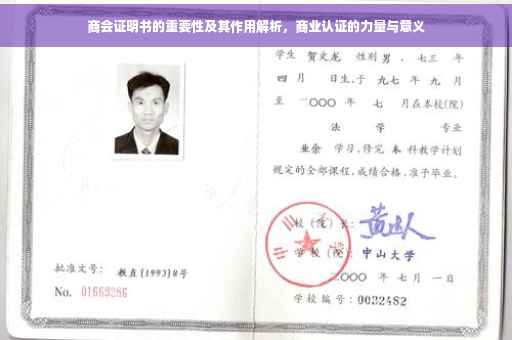 商会证明书的重要性及其作用解析，商业认证的力量与意义
学生 贺文龙 性别 男 、七三 年
四 月 日生，于 九七 年 九 月
至 二〇〇〇 年 七 月在本校(院)
法 学 专业
业余 学习，修完 本 科教学计划
规定的全部课程，成绩合格，准予毕业。
校（院）长：
学校（院）：中山大学
二〇〇〇 年 七 月 一日
学校编号：0032482
批准文号： 教直[1993]8号
No. 01669286